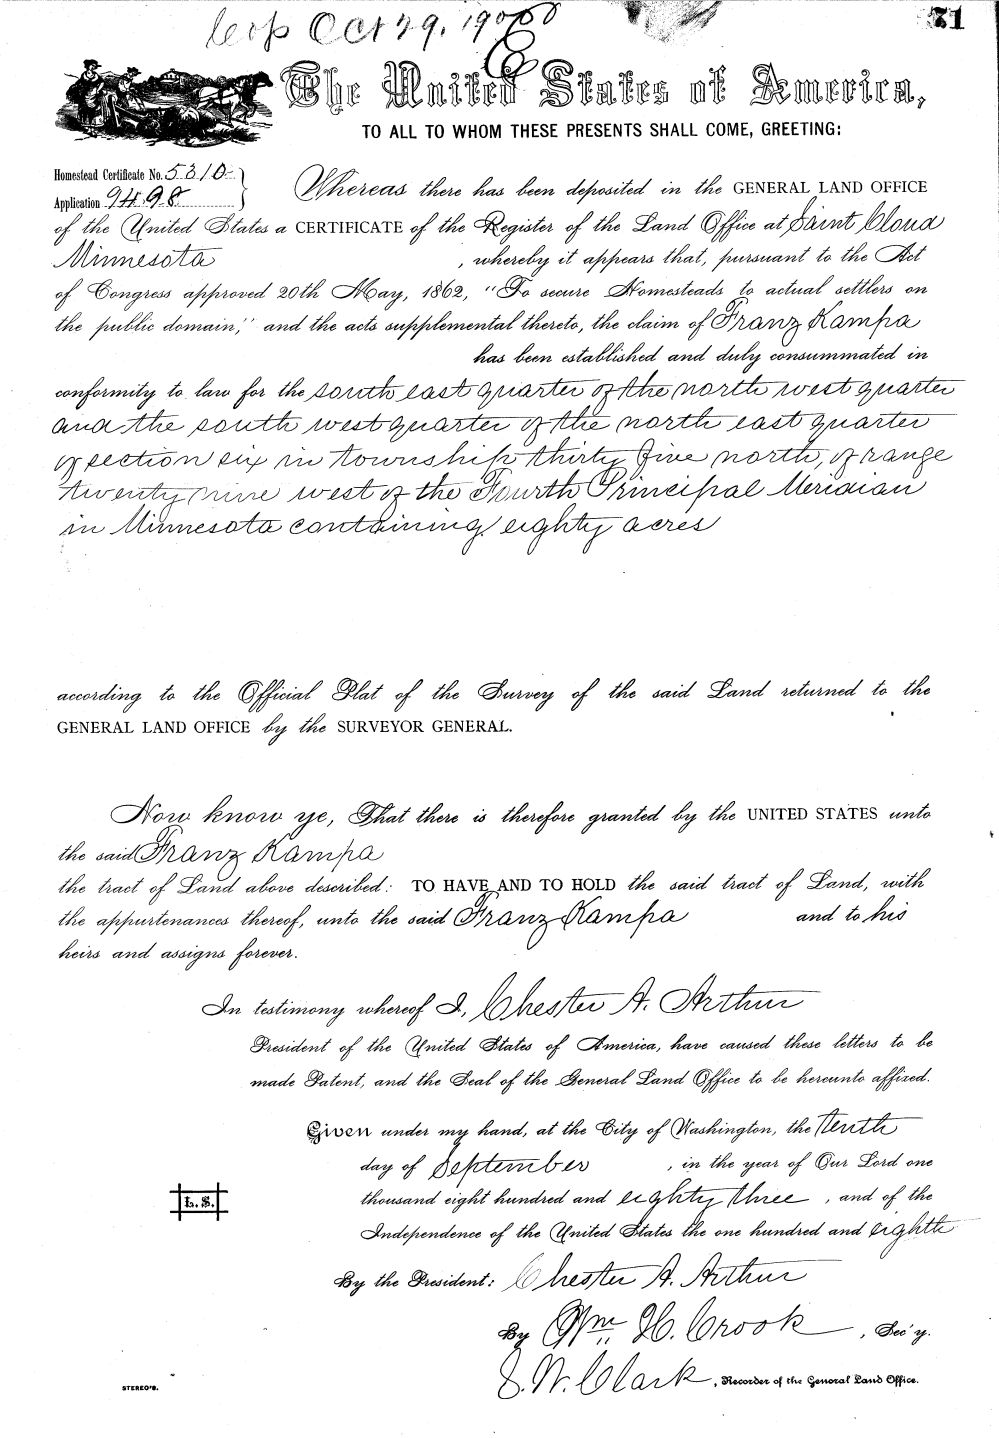 Cop Oct 29, 190
71
The United States of America,
TO ALL TO WHOM THESE PRESENTS SHALL COME, GREETING:
Homestead Certificate No. 5310
Application 9498
Whereas there has been deposited in the GENERAL LAND OFFICE
of the United States a CERTIFICATE of the Register of the Land Office at Saint Cloud
Minnesota , whereby it appears that, pursuant to the Act
of Congress approved 20th May, 1862, "To secure Homesteads to actual settlers on
the public domain," and the acts supplemental thereto, the claim of Franz Kampa
has been established and duly consummated in
conformity to law for the south east quarter of the north west quarter
and the south west quarter of the north east quarter
of section six in township thirty five north, of range
twenty nine west of the Fourth Principal Meridian
in Minnesota containing eighty acres
according to the Official Plat of the Survey of the said Land returned to the
GENERAL LAND OFFICE by the SURVEYOR GENERAL.
Now know ye, That there is therefore granted by the UNITED STATES unto
the said Franz Kampa
the tract of Land above described: TO HAVE AND TO HOLD the said tract of Land, with
the appurtenances thereof, unto the said Franz Kampa and to his
heirs and assigns forever.
In testimony whereof I, Chester A. Arthur
President of the United States of America, have caused these letters to be
made Patent, and the Seal of the General Land Office to be hereunto affixed.
Given under my hand, at the City of Washington, the tenth
day of September , in the year of Our Lord one
thousand eight hundred and eighty three , and of the
L.S.
Independence of the United States the one hundred and eighth
By the President: Chester A. Arthur
By Wm H. Crook , Sec'y.
S. W. Clark , Recorder of the General Land Office.
STEREO'S.